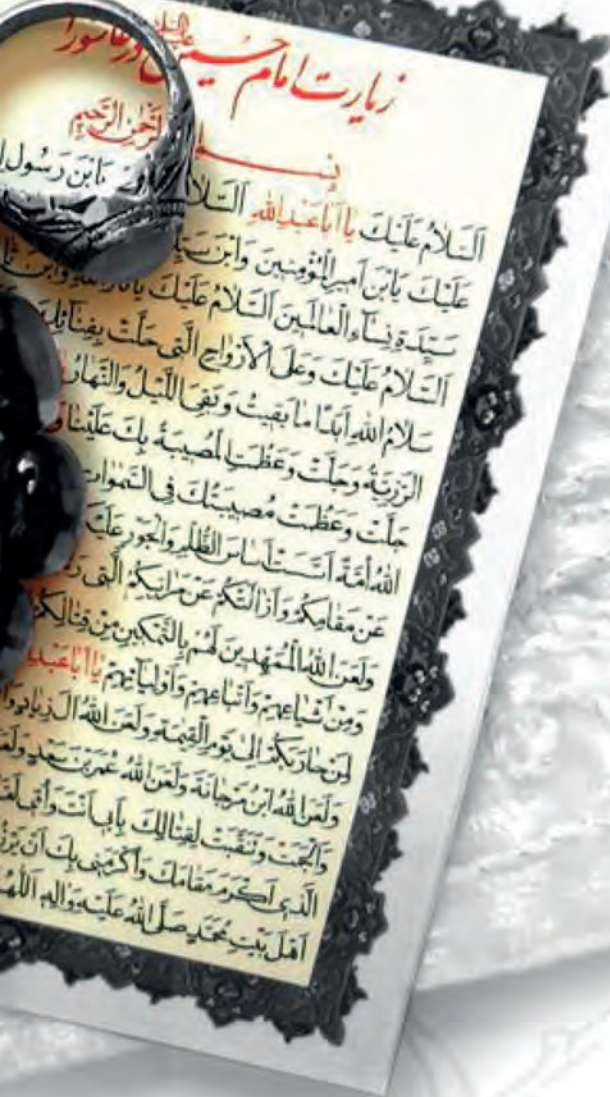 زیارت امام حسین علیه السلام در عاشورا
بسم الرَّحْمٰنِ الرَّحیمِ
اَلسَّلامُ عَلَیْكَ یا اَبا عَبْدِاللهِ اَلسَّلا یَابْنَ رَسُولِ
عَلَیْكَ یَابْنَ اَمیرِالْمُؤْمِنینَ وَابْنَ سَیِّدِ
سَیِّدَةِ نِسٰاءِ الْعالَمینَ اَلسَّلامُ عَلَیْكَ یا ثارَ اللهِ وَابْنَ ثا
اَلسَّلامُ عَلَیْكَ وَعَلَی الْاَرْواحِ الَّتی حَلَّتْ بِفِنائِكَ
سَلامُ اللهِ اَبَدًا ما بَقیتُ وَبَقِیَ اللَّیْلُ وَالنَّهارُ
الرَّزِیَّةُ وَجَلَّتْ وَعَظُمَتِ الْمُصیبَةُ بِكَ عَلَیْنا
جَلَّتْ وَعَظُمَتْ مُصیبَتُكَ فِی السَّمٰوات
اللهُ اُمَّةً اَسَّسَتْ اَساسَ الظُّلْمِ وَالْجَوْرِ عَلَیْ
عَنْ مَقامِكُمْ وَاَزالَتْكُمْ عَنْ مَراتِبِكُمُ الَّتی رَ
وَلَعَنَ اللهُ الْمُمَهِّدینَ لَهُمْ بِالتَّمْكینِ مِنْ قِتالِكُمْ
وَمِنْ اَشْیاعِهِمْ وَاَتْباعِهِمْ وَاَوْلِیائِهِمْ یا اَبا عَبْدِ
لِمَنْ حارَبَكُمْ اِلٰی یَوْمِ الْقِیٰمَةِ وَلَعَنَ اللهُ الَ زِیادٍ وَا
وَلَعَنَ اللهُ ابْنَ مَرْجانَةَ وَلَعَنَ اللهُ عُمَرَ بْنَ سَعْدٍ وَلَعَ
وَاَلْجَمَتْ وَتَنَقَّبَتْ لِقِتالِكَ بِاَبی اَنْتَ وَاُمّی لَقَ
الَّذی اَكْرَمَ مَقامَكَ وَاَكْرَمَنی بِكَ اَنْ یَرْزُ
اَهْلِ بَیْتِ مُحَمَّدٍ صَلَّی اللهُ عَلَیْهِ وَالِهِ اَللّٰهُ